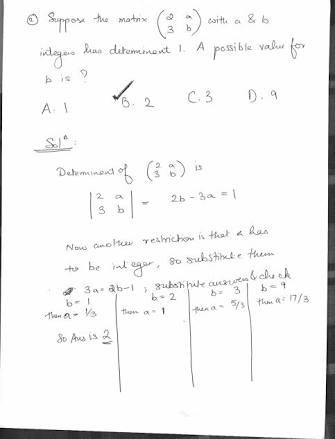 ② Suppose the matrix (2 a
3 b) with a & b
integers has determinent 1. A possible value for
b is ?
A. 1 B. 2 C. 3 D. 9
Solⁿ:
Determinent of (2 a
3 b) is
|2 a
3 b| = 2b - 3a = 1
Now another restriction is that a has
to be integer, so substitute them
3a = 2b-1 ; substitute answers & check
b = 1 b = 2 b = 3 b = 9
then a = 1/3 then a = 1 then a = 5/3 then a = 17/3
So Ans is 2